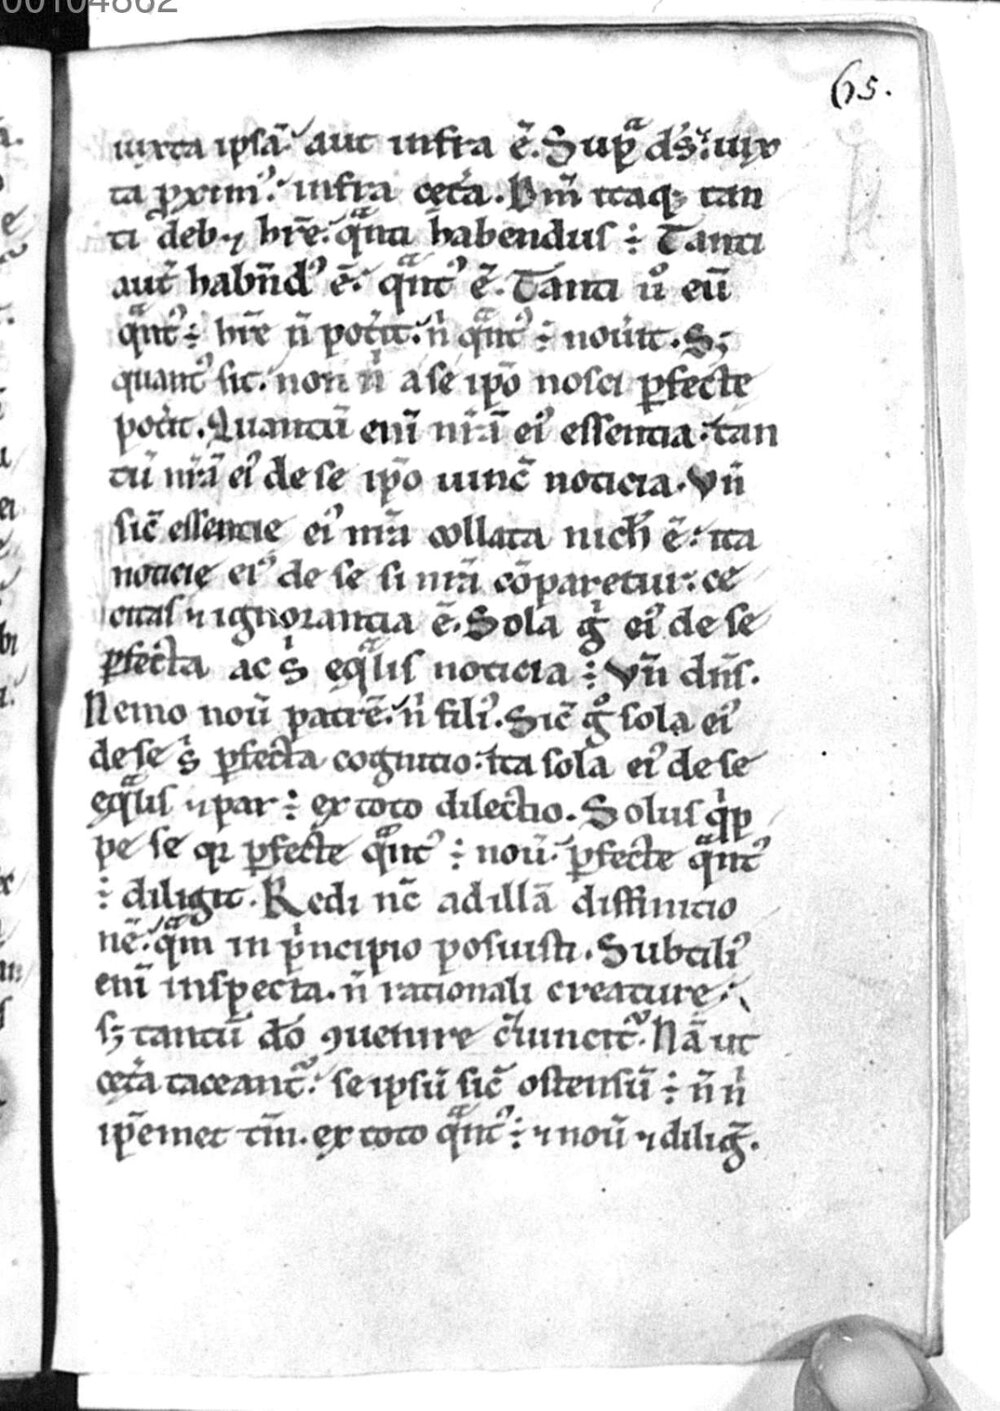 00104862
65.
iuxta ipsā. aut infra ē. Sup̱ᵃ ds̄. iux
ta ꝓximꝰ. infra cet̄a. Bm̄ itaqꝫ tan
ti deb⁊ hr̄e. qᵃnti habendus ÷ Tanti
aut̄ habn̄dꝰ ē. qᵃntꝰ ē. Tanti ů eū
qᵃntꝰ ÷ hr̄e n̄ pot̄it. nͥ qᵃntꝰ ÷ nou̇it. Sꝫ
quantꝰ sit. non nͥ a se ip̄o nosci ꝑfecte
pot̄it. Quantū eni᷒ nr̄ā eiꝰ essentia. tan
tū nr̄ā eiꝰ de se ip̄o uinc̄ noticia. Vn̄
sic̄ essentie eiꝰ nr̄a collata nich̄ ē. ita
noticię eiꝰ de se si nr̄a cōparetur. ce
citas ⁊ ignorantia ē. Sola gͥ eiꝰ de se
ꝑfecta ac sͥ eqᵃlis noticia ÷ Vn̄ dn̄s.
Nemo nou̇ patrē. nͥ filiꝰ. Sic̄ gͦ sola eiꝰ
de se sͥ ꝑfecta cognitio. ita sola eiꝰ de se
eqᵃlis ⁊ par ÷ ex toto dilectio. Solus qͥp
pe se qꝛ ꝑfecte qᵃntꝰ ÷ nou̇. ꝑfecte qᵃntꝰ
÷ diligit. Redi nc̄ ad illā diffinitio
nē. qᵃm in pͥncipio posuisti. Subtiliꝰ
eni᷒ inspecta. n̄ rationali creature.
sꝫ tantū dō ꝯuenire ꝯuincit᷑. Nā ut
cet̄a taceant᷑. se ipsū sic̄ ostensū ÷ n̄ nͥ
ip̄emet tm̄. ex toto qᵃntꝰ ÷ ⁊ nou̇ ⁊ diliḡ.